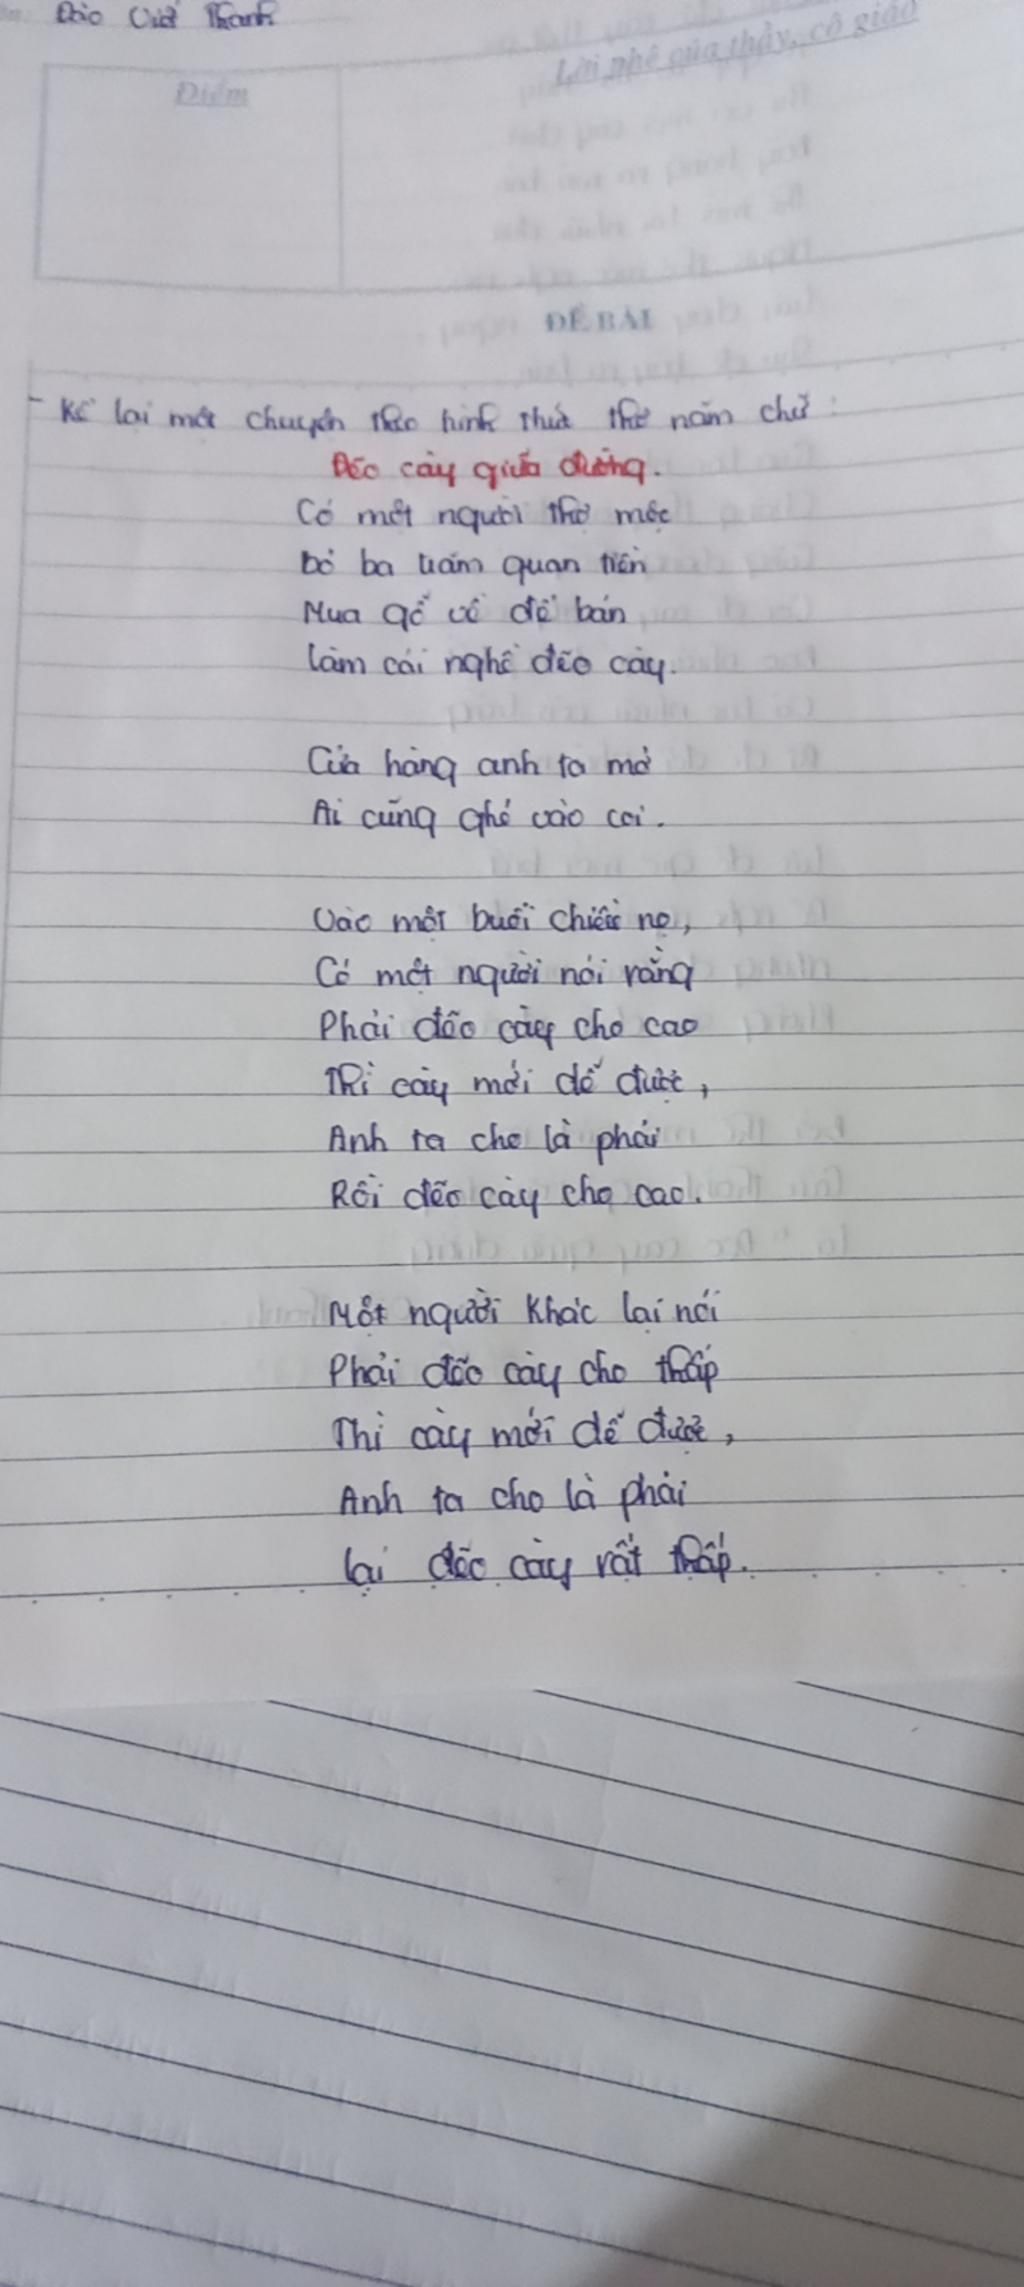 Đào Viết Thanh
Lời phê của thầy, cô giáo
Điểm
ĐỀ BÀI
- Kể lại một chuyện theo hình thức thơ năm chữ:
Đẽo cày giữa đường.
Có một người thợ mộc
bỏ ba trăm quan tiền
Mua gỗ về để bán
làm cái nghề đẽo cày.
Cửa hàng anh ta mở
Ai cũng ghé vào coi.
Vào một buổi chiều nọ,
Có một người nói rằng
Phải đẽo cày cho cao
Thì cày mới dễ được,
Anh ta cho là phải
Rồi đẽo cày cho cao.
Một người khác lại nói
Phải đẽo cày cho thấp
Thì cày mới dễ được,
Anh ta cho là phải
lại đẽo cày rất thấp.